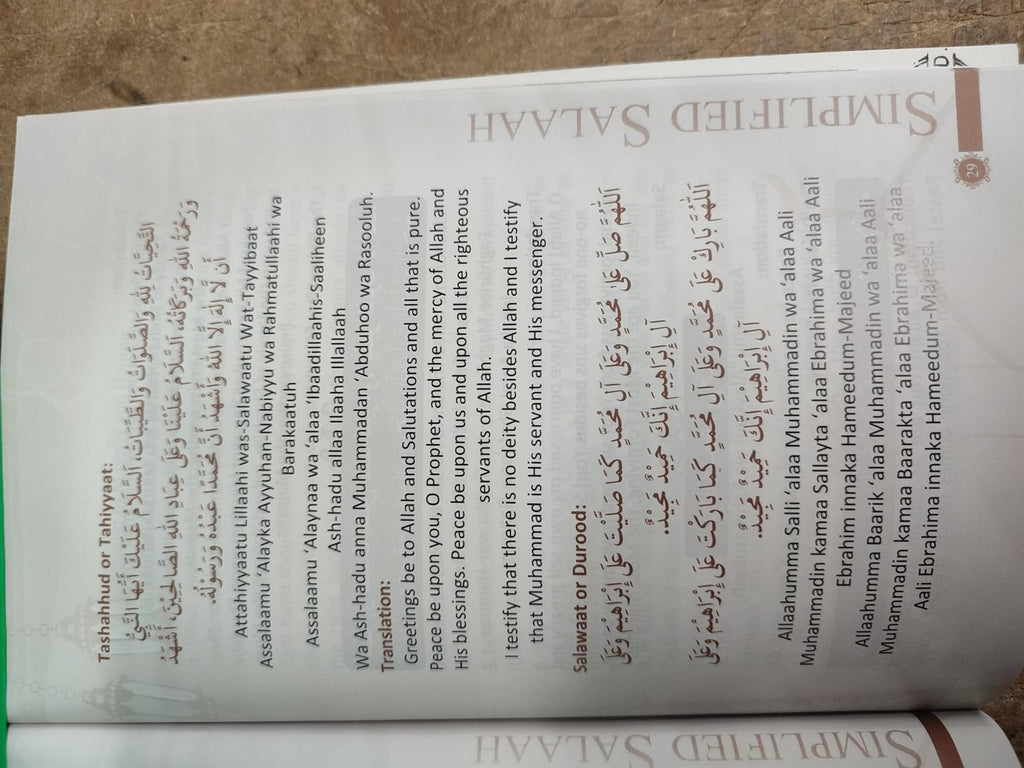 SIMPLIFIED SALAAH
Tashahhud or Tahiyyaat:
التَّحِيَّاتُ لِلّٰهِ وَالصَّلَوَاتُ وَالطَّيِّبَاتُ، اَلسَّلَامُ عَلَيْكَ أَيُّهَا النَّبِيُّ
وَرَحْمَةُ اللهِ وَبَرَكَاتُهُ، اَلسَّلَامُ عَلَيْنَا وَعَلَى عِبَادِ اللهِ الصَّالِحِيْنَ، أَشْهَدُ
أَن لَّا إِلٰهَ إِلَّا اللهُ وَأَشْهَدُ أَنَّ مُحَمَّدًا عَبْدُهُ وَرَسُوْلُهُ.
Attahiyyaatu Lillaahi was-Salawaatu Wat-Tayyibaat
Assalaamu ‘Alayka Ayyuhan-Nabiyyu wa Rahmatullaahi wa
Barakaatuh
Assalaamu ‘Alaynaa wa ‘alaa ‘Ibaadillaahis-Saaliheen
Ash-hadu allaa Ilaaha Illallaah
Wa Ash-hadu anna Muhammadan ‘Abduhoo wa Rasooluh.
Translation:
Greetings be to Allah and Salutations and all that is pure.
Peace be upon you, O Prophet, and the mercy of Allah and
His blessings. Peace be upon us and upon all the righteous
servants of Allah.
I testify that there is no deity besides Allah and I testify
that Muhammad is His servant and His messenger.
Salawaat or Durood:
اَللّٰهُمَّ صَلِّ عَلَى مُحَمَّدٍ وَعَلَى آلِ مُحَمَّدٍ كَمَا صَلَّيْتَ عَلَى إِبْرَاهِيْمَ وَعَلَى
آلِ إِبْرَاهِيْمَ إِنَّكَ حَمِيْدٌ مَّجِيْدٌ.
اَللّٰهُمَّ بَارِكْ عَلَى مُحَمَّدٍ وَعَلَى آلِ مُحَمَّدٍ كَمَا بَارَكْتَ عَلَى إِبْرَاهِيْمَ وَعَلَى
آلِ إِبْرَاهِيْمَ إِنَّكَ حَمِيْدٌ مَّجِيْدٌ.
Allaahumma Salli ‘alaa Muhammadin wa ‘alaa Aali
Muhammadin kamaa Sallayta ‘alaa Ebrahima wa ‘alaa Aali
Ebrahim innaka Hameedum-Majeed
Allaahumma Baarik ‘alaa Muhammadin wa ‘alaa Aali
Muhammadin kamaa Baarakta ‘alaa Ebrahima wa ‘alaa
Aali Ebrahima innaka Hameedum-Majeed.
29
SIMPLIFIED SALAAH